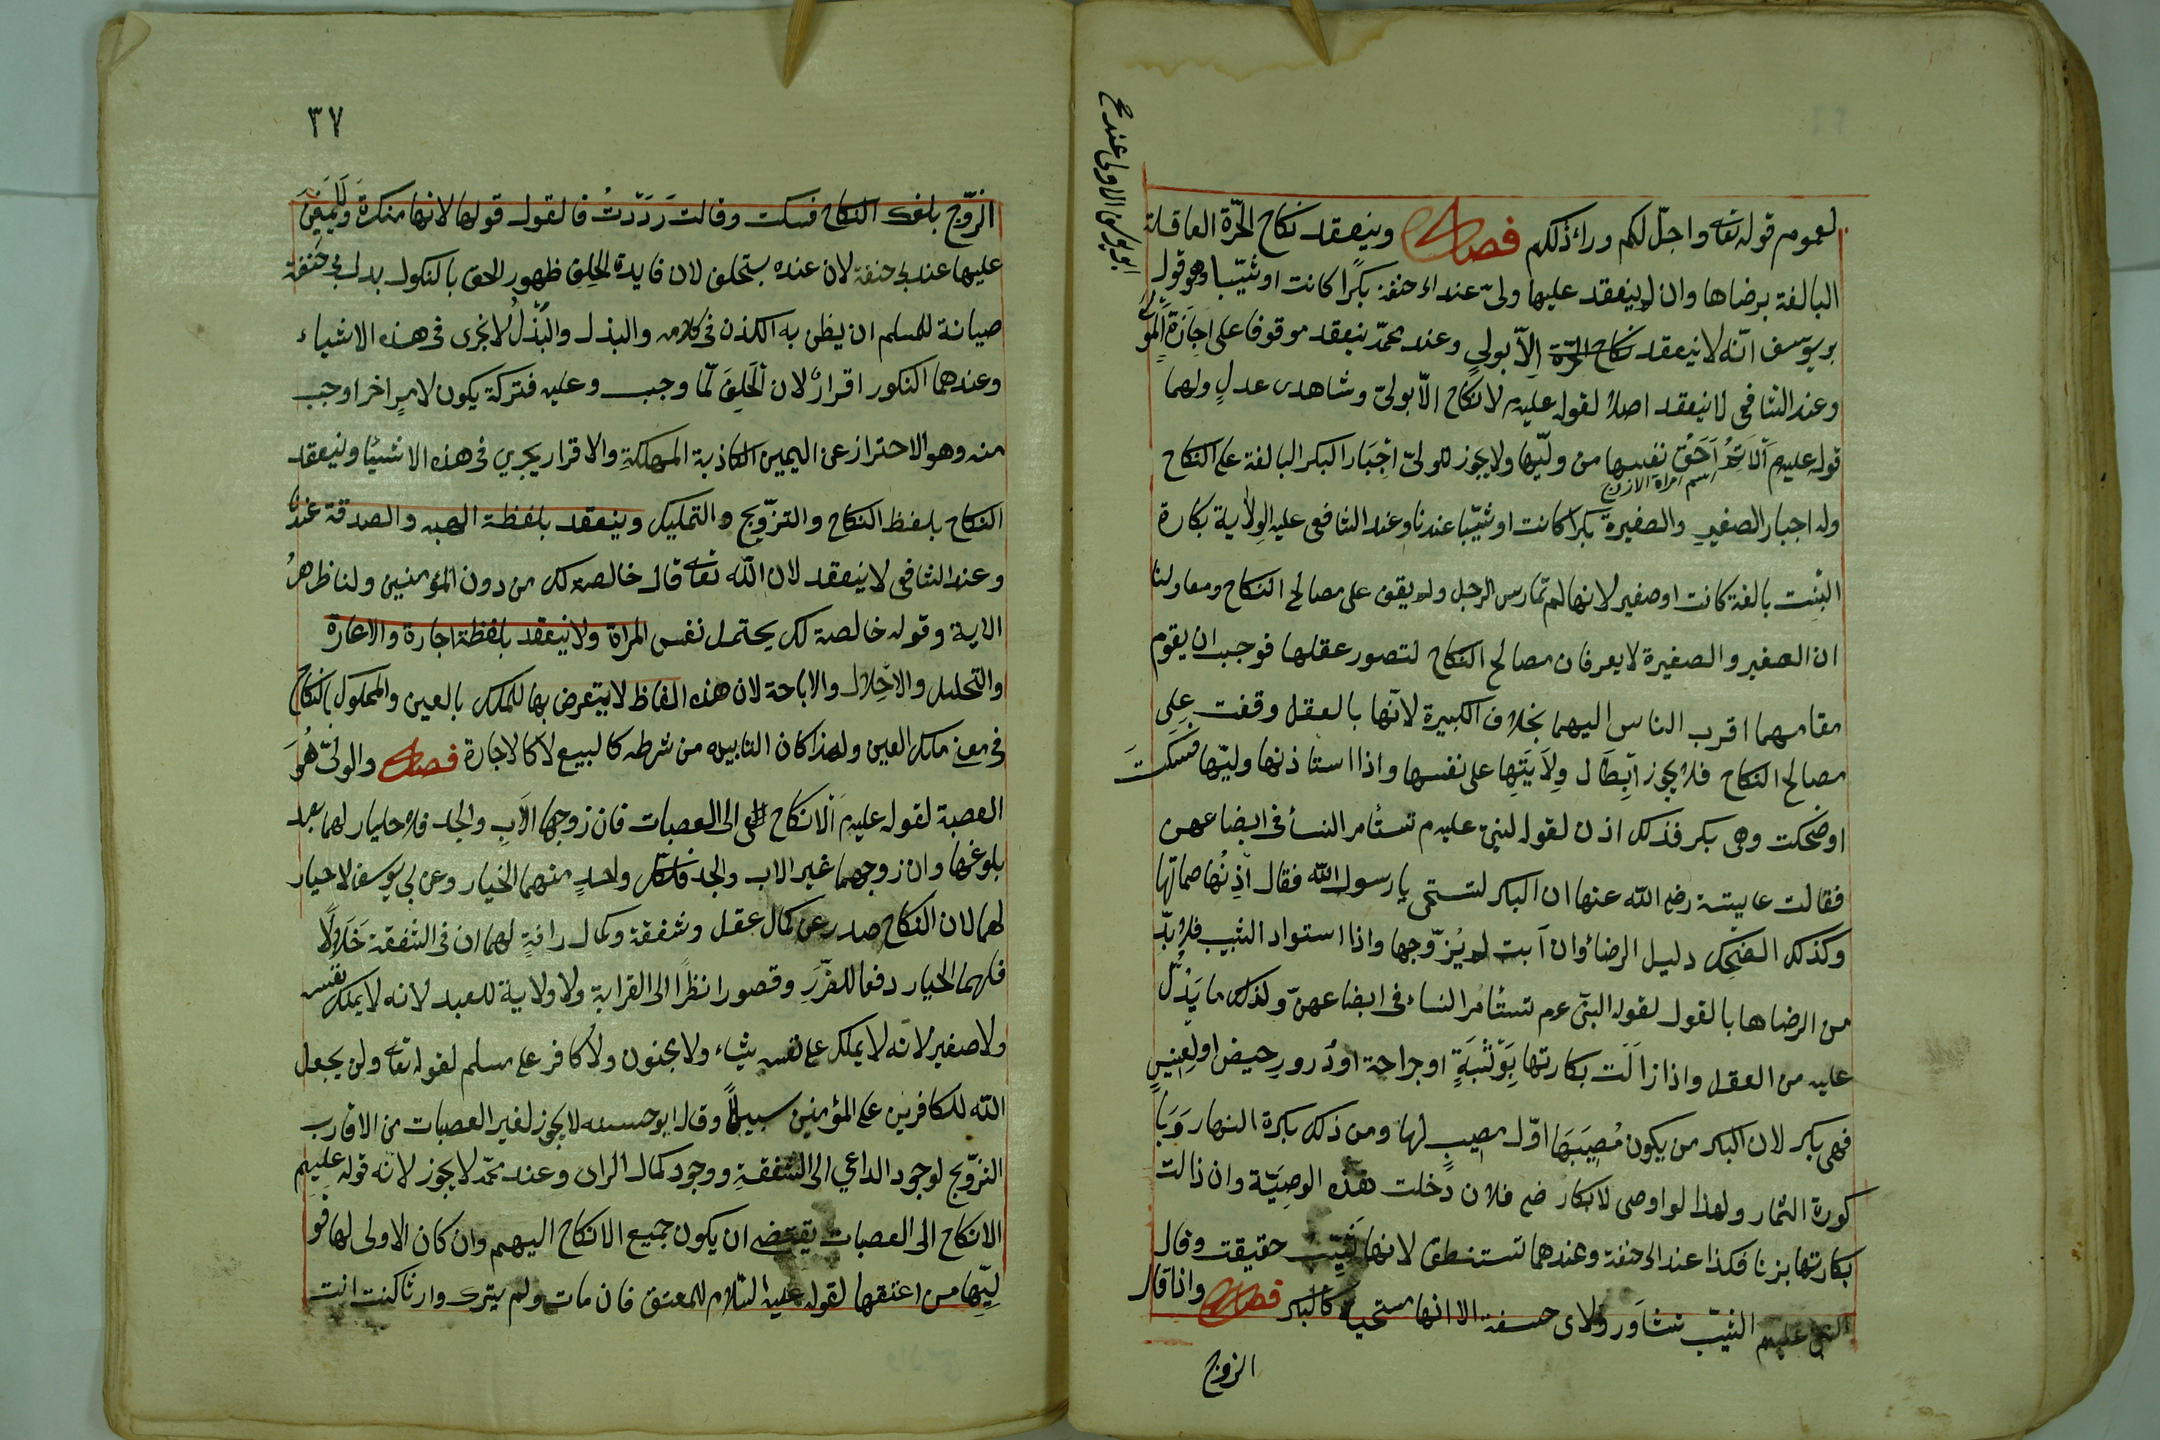 لعموم قوله تعا واحلّ لكم وراء ذلكم فصل وينعقد نكاح الحرّة العاقلة
البالغة برضاها وان لم ينعقد عليها ولىّ عند اء حنفة بكرًا كانت او ثيّبا وهو قول
بويوسف انّه لا ينعقد نكاح الحرّة الاّ بولي وعند محمّد ينعقد موقوفا على اجازة المولى
ابويوسف الاولى عند
وعند الشافعى لا ينعقد اصلا لقوله عليه م لا نكاح الاّ بولىّ وشاهدى عدلٍ ولهما
قوله عليه م احقّ نفسها من وليّها ولا يجوز للولىّ اجبار البكر البالغة على النكاح
اسم امراة الازوج
وله اجبار الصغير والصغيرة بكرا كانت او ثيّبا عندنا وعند الشافعى عليه الولاية بكارة
البنت بالغة كانت او صغير لانها لم تمارس الرجل ولم يقف على مصالح النكاح ومعاولنا
ان الصغير والصغيرة لا يعرفان مصالح النكاح لتصور عقلها فوجب ان يقوم
مقامهما اقرب الناس اليهما بخلاف الكبيرة لانّها بالعقل وقفت على
مصالح النكاح فلا يجوز ابطال ولايتها على نفسها واذا استاذنها وليّها فسكت
اوضحكت وهى بكر فذلك اذن لقوله لنبىّ عليه م تستأمر النسأ فى ابضاعهن
فقالت عايشة رضى الله عنها ان البكر لتستحى يا رسول الله فقال اذنها صماتها
وكذلك الضحك دليل الرضا وان آبت لم يزّوجها واذا استواد الثيب فلا بدّ
من الرضاها بالقول لقوله النبىّ عم تستأمر النساء فى ابضاعهنّ ولذلك ما يدلّ
عليه من العقل واذا زالت بكارتها بوثبةٍ او جراحة او درور حيض او لعنيسٍ
فهى بكر لان البكر من يكون مصيبها اوّل مصيبٍ لها ومن ذلك بكرة النهار وبا
كورة الثمار ولهذا لو اوصى لابكار ضى فلان دخلت هذه الوصيّة وان ذالت
بكارتها بزنا فكذا عند الى حنفة وعندهما تستنطق لانها ثيّب حقيقت وقال
النبى عليه م الثيّب تشاور ولاى حسفة الا انها مستحية كالبكر فصل واذا قال
الزوج
٣٧
الزوّج بلغك النكاح فسكت وقالت رددّت فالقول قولها لانها منكرة ولا يمين
عليها عند بى حنفة لان عنده يستحلق لان فايدة الحلف ظهور الحق بالنكول بدل بى حنفة
صيانة للمسلم ان يظن به الكذن فى كلامه والبذل والبذل لا يجرى فى هذه الاشياء
وعندهما النكور اقرارٌ لان الحلف لمّا وجب وعليه فتركة يكون لامرٍ اخر اوجب
منه وهو الاحتراز عن اليمين الكاذبة المهلكة والاقرار يجري فى هذه الاشئا وينعقد
النكاح بلفظ النكاح والتزويج والتمليك وينعقد بلفظة الهبه والصدقة عندنا
وعند الشافعى لا ينعقد لان اللّه تعا قال خالصه لك من دون المؤمنين ولنا ظاهر
الاية وقوله خالصة لك يحتمل نفس المراة ولا ينعقد بلفظة اجارة والاعارة
والتحليل والاحلال والاباحة لان هذه الفاظ لا يتعرض بها للملك بالعين والمملوك بالنكاح
فى معنى ملك العين ولهذا كان التابيد من شرطه كالبيع لا كالاجارة فصل والولىّ هو
العصبة لقوله عليه م الانكاح الى العصبات فان زوجها الاب والجد فلا حليار لهما بعد
بلوغها وان زوجهما غير الاب والجد فلكل واحدٍ منهما الخيار وعن بى يوسف لا حيار
لهما لان النكاح صدر عن كمال عقل وشفقة وكمال رافةٍ لهما ان فى الشفقة خلالاً
فلهما الحيار دفعا للضّرر وقصورا نظرًا الى القرابة ولا ولاية للعبد لانه لا يملك نفسه
ولا صغير لانّه لا يملك على نفسه شياء ولا مجنون ولا كافر على مسلم لقوله تعا ولن يجعل
اللّه للكافرين على المؤمنين سبيلاً وقال ابو حسفه لا يجوز لغير العصبات من الاقارب
التزوّيج لوجود الداعي الى الشفقة ووجود كمال الراى وعند محمّد لا يجوز لانّه قوله عليهم
الانكاح الى العصبات يقتضى ان يكون جميع الانكاح اليهم وان كان الاولى لها فو
ليّها من اعتقها لقوله عليه السّلام للمعتق فان مات ولم يترك وارثا كنت انت